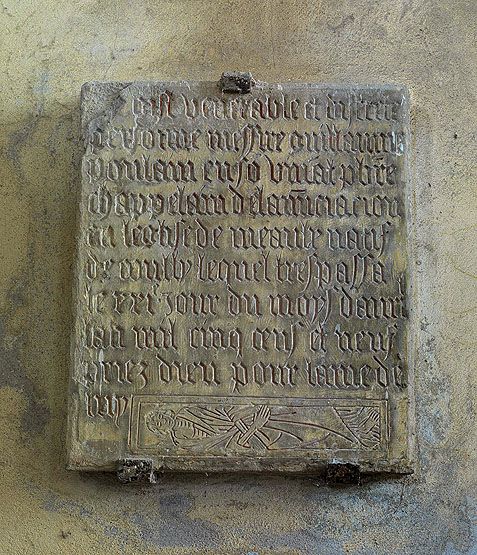 gist venerable et discrete
personne messire guillaume
poulain en so vivāt pb̄re
chappelain de lanūciacion
en leglise de meaulx natif
de milly lequel trespassa
le xxi jour du moys dauril
lan mil cinq cens et neuf
priez dieu pour lame de
luy